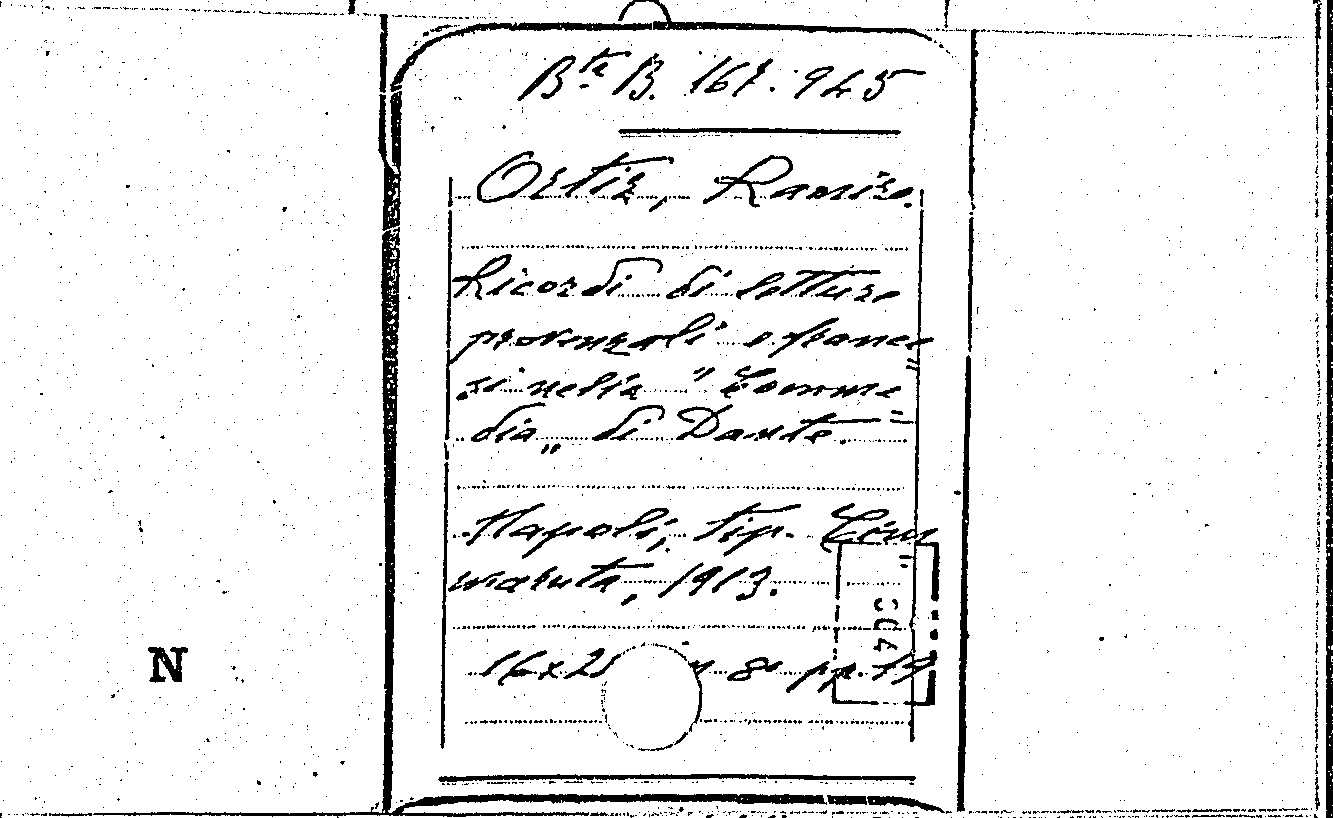 Bta B. 167. 945
Ortiz, Ramiro.
Ricordi di letture
provenzali e france
si nella "Comme
dia„ di Dante.
Napoli, tip. Cim
maruta, 1913.
504
N
16x25 8° pp. 19